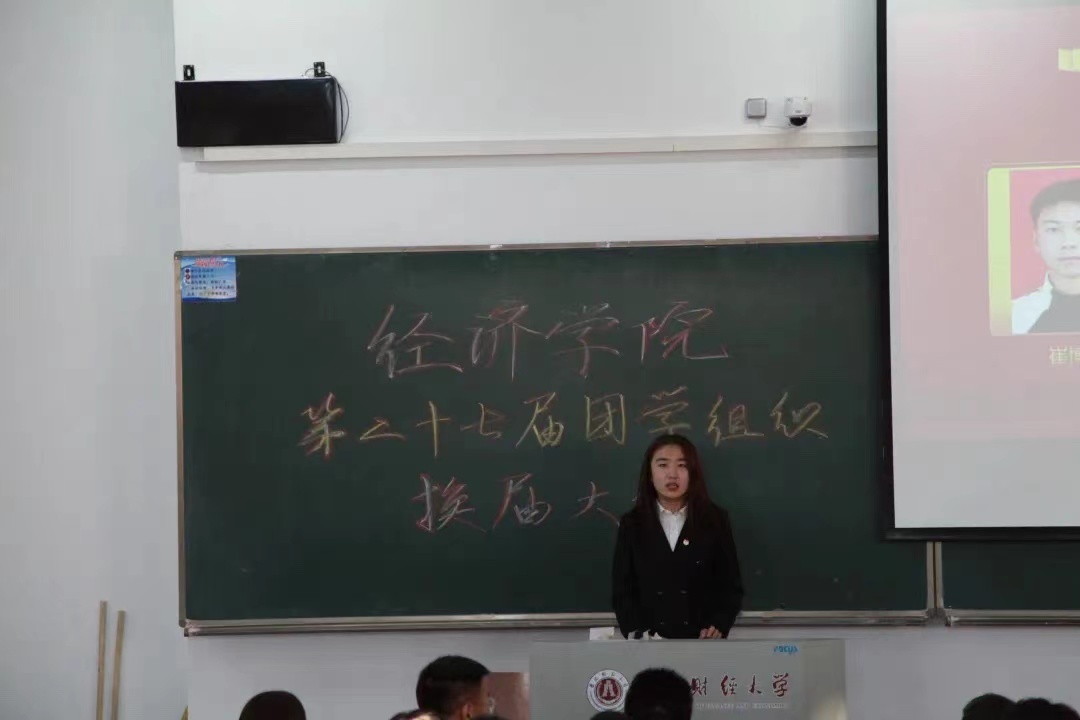 经济学院
第二十七届团学组织
换届大
崔博
财经大学